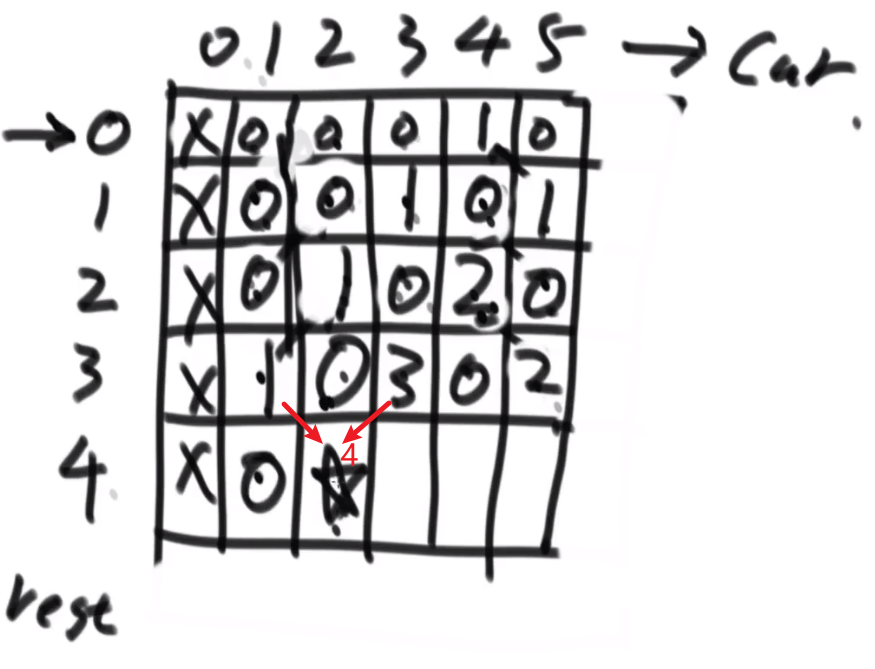 0 1 2 3 4 5 → Cur
→ 0 X 0 0 0 1 0
1 X 0 0 1 0 1
2 X 0 1 0 2 0
3 X 1 0 3 0 2
4 X 0 4
rest